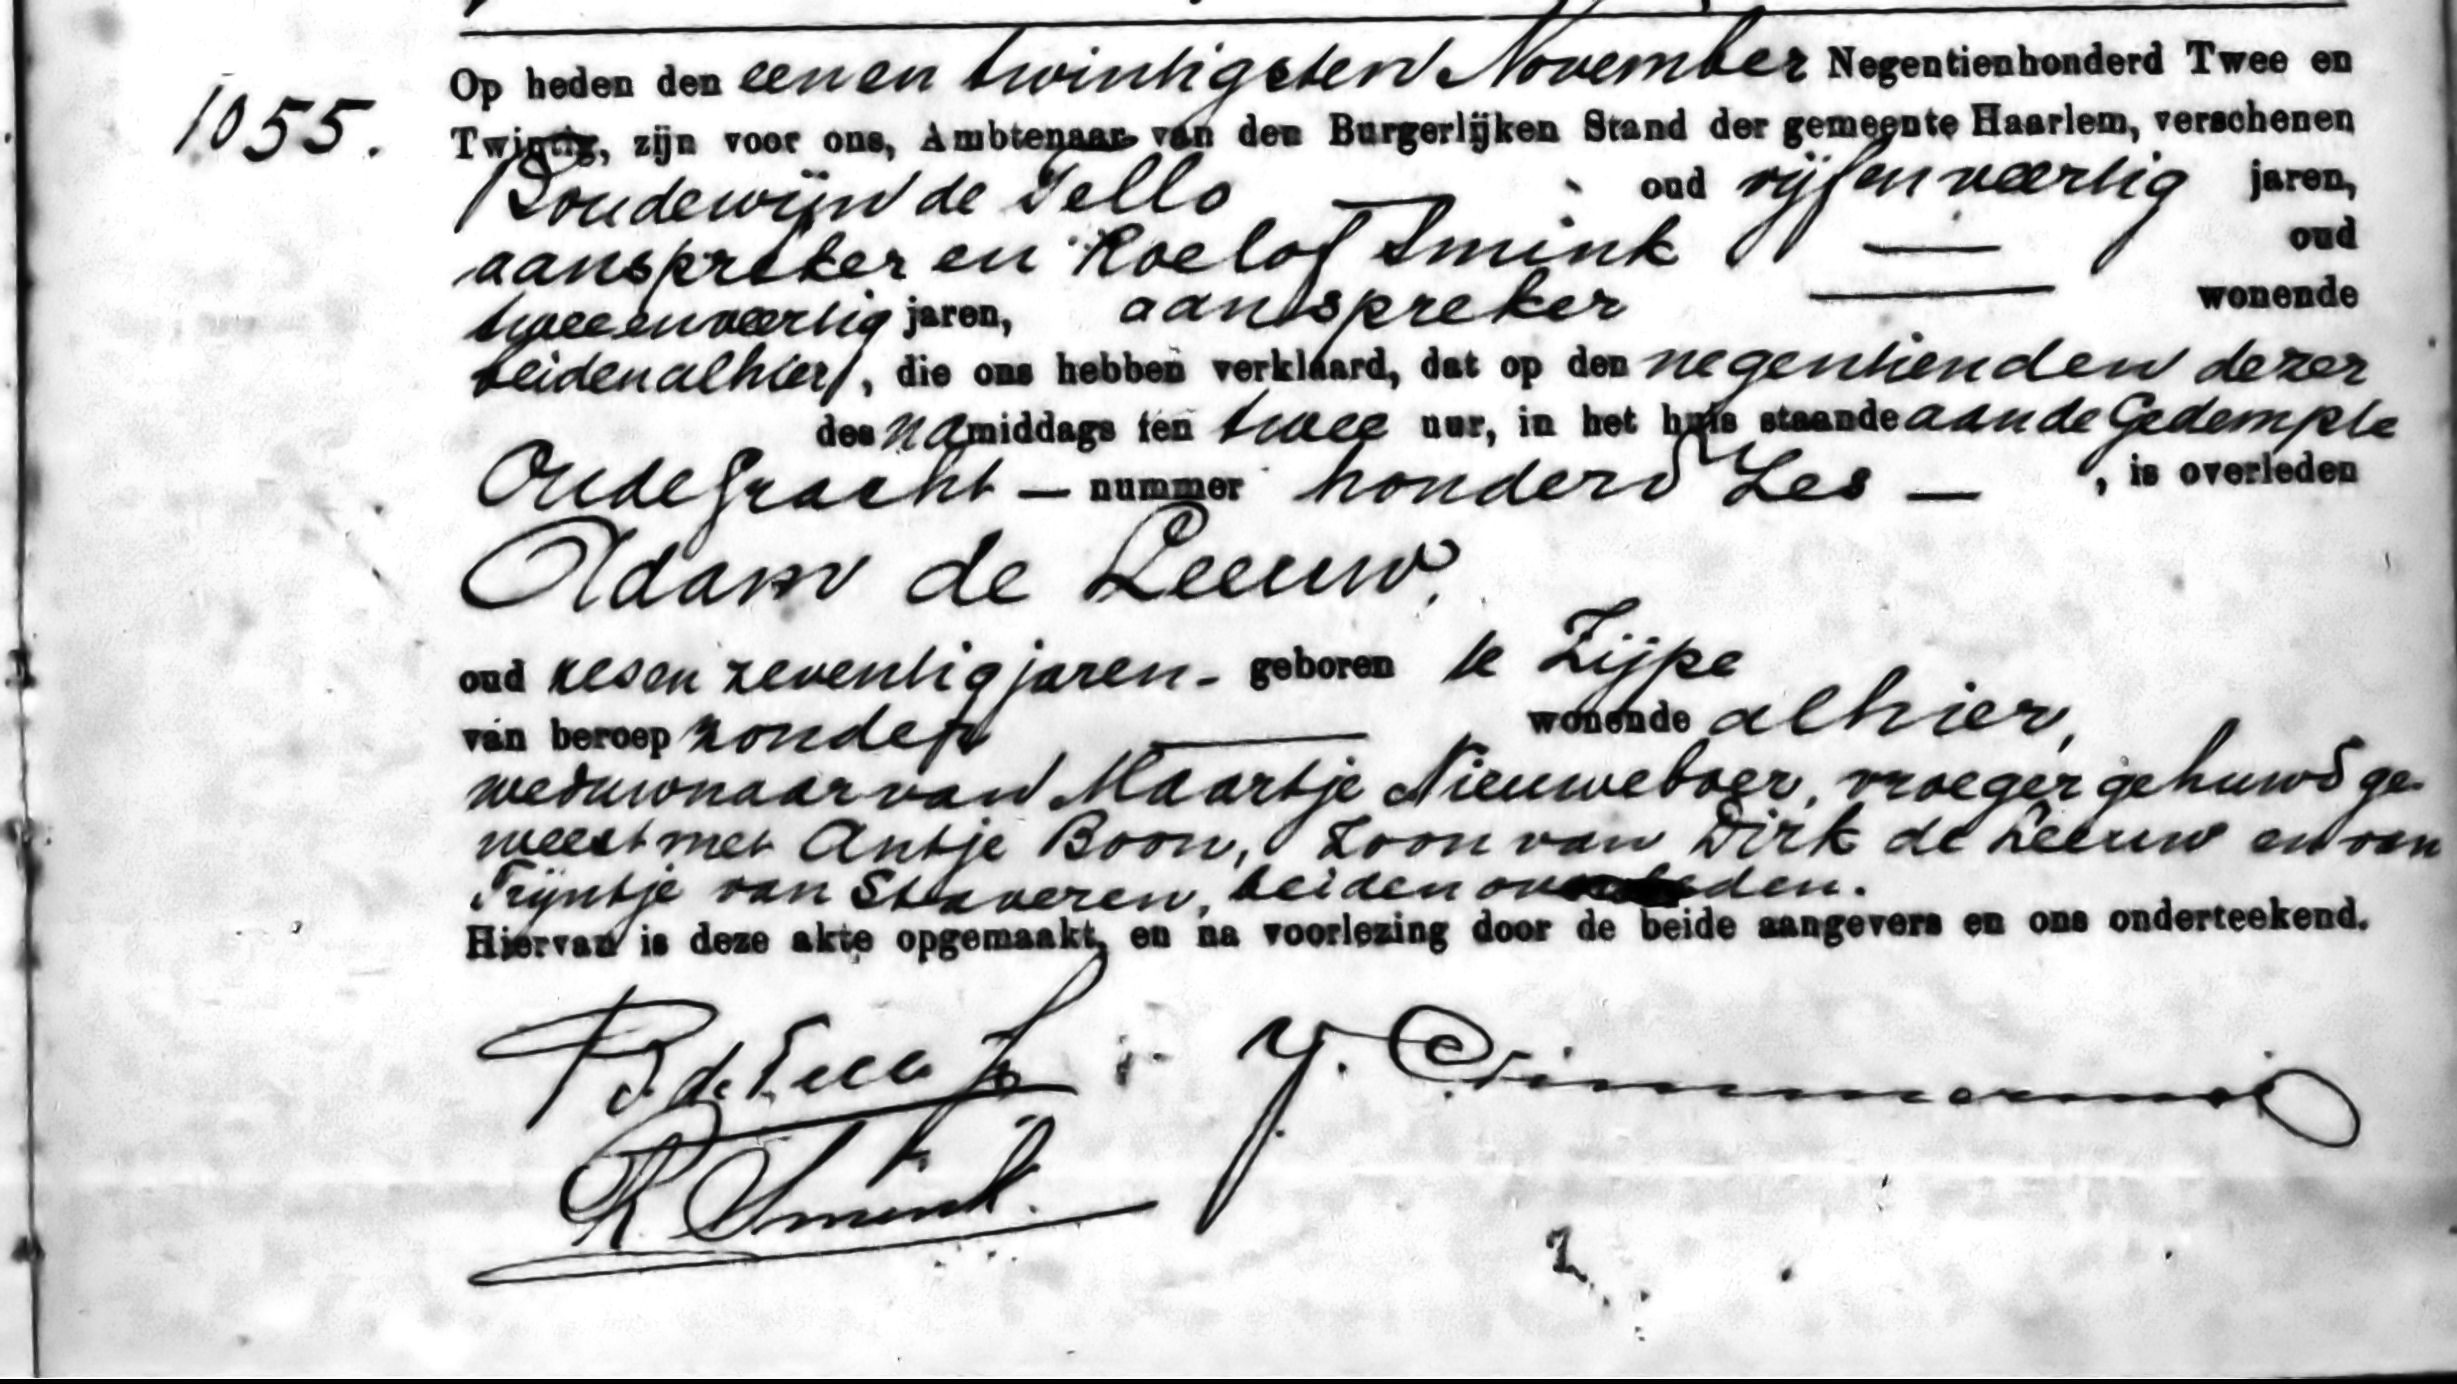 1055.
Op heden den eenen twintigsten November Negentienhonderd Twee en
Twintig, zijn voor ons, Ambtenaar van den Burgerlijken Stand der gemeente Haarlem, verschenen
Boudewijn de Tello — oud vijfenveertig jaren,
aanspreker en Roelof Smink — oud
tweeenveertig jaren, aanspreker — wonende
beiden alhier, die ons hebben verklaard, dat op den negentienden dezer
des namiddags ten twee uur, in het huis staande aan de Gedempte
Oude Gracht — nummer honderd Zes —, is overleden
Adam de Leeuw,
oud zesen zeventig jaren - geboren te Zijpe
van beroep zonder — wonende alhier,
weduwnaar van Maartje Nieuweboer, vroeger gehuwd ge-
weest met Antje Boon, Zoon van Dirk de Leeuw en van
Trijntje van Staveren, beiden overleden.
Hiervan is deze akte opgemaakt, en na voorlezing door de beide aangevers en ons onderteekend.
B. de Tello
R. Smink.